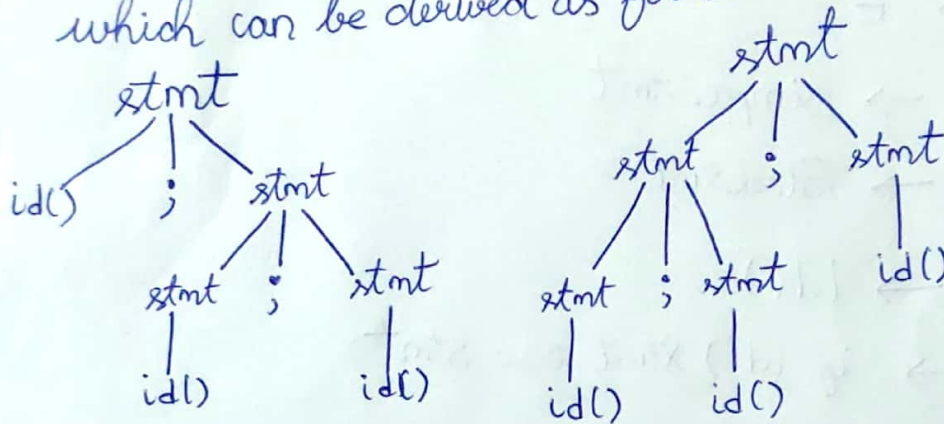 which can be derived as
stmt
stmt
id() ; stmt
stmt ; stmt
stmt ; stmt
stmt ; stmt
id()
id() id()
id() id()